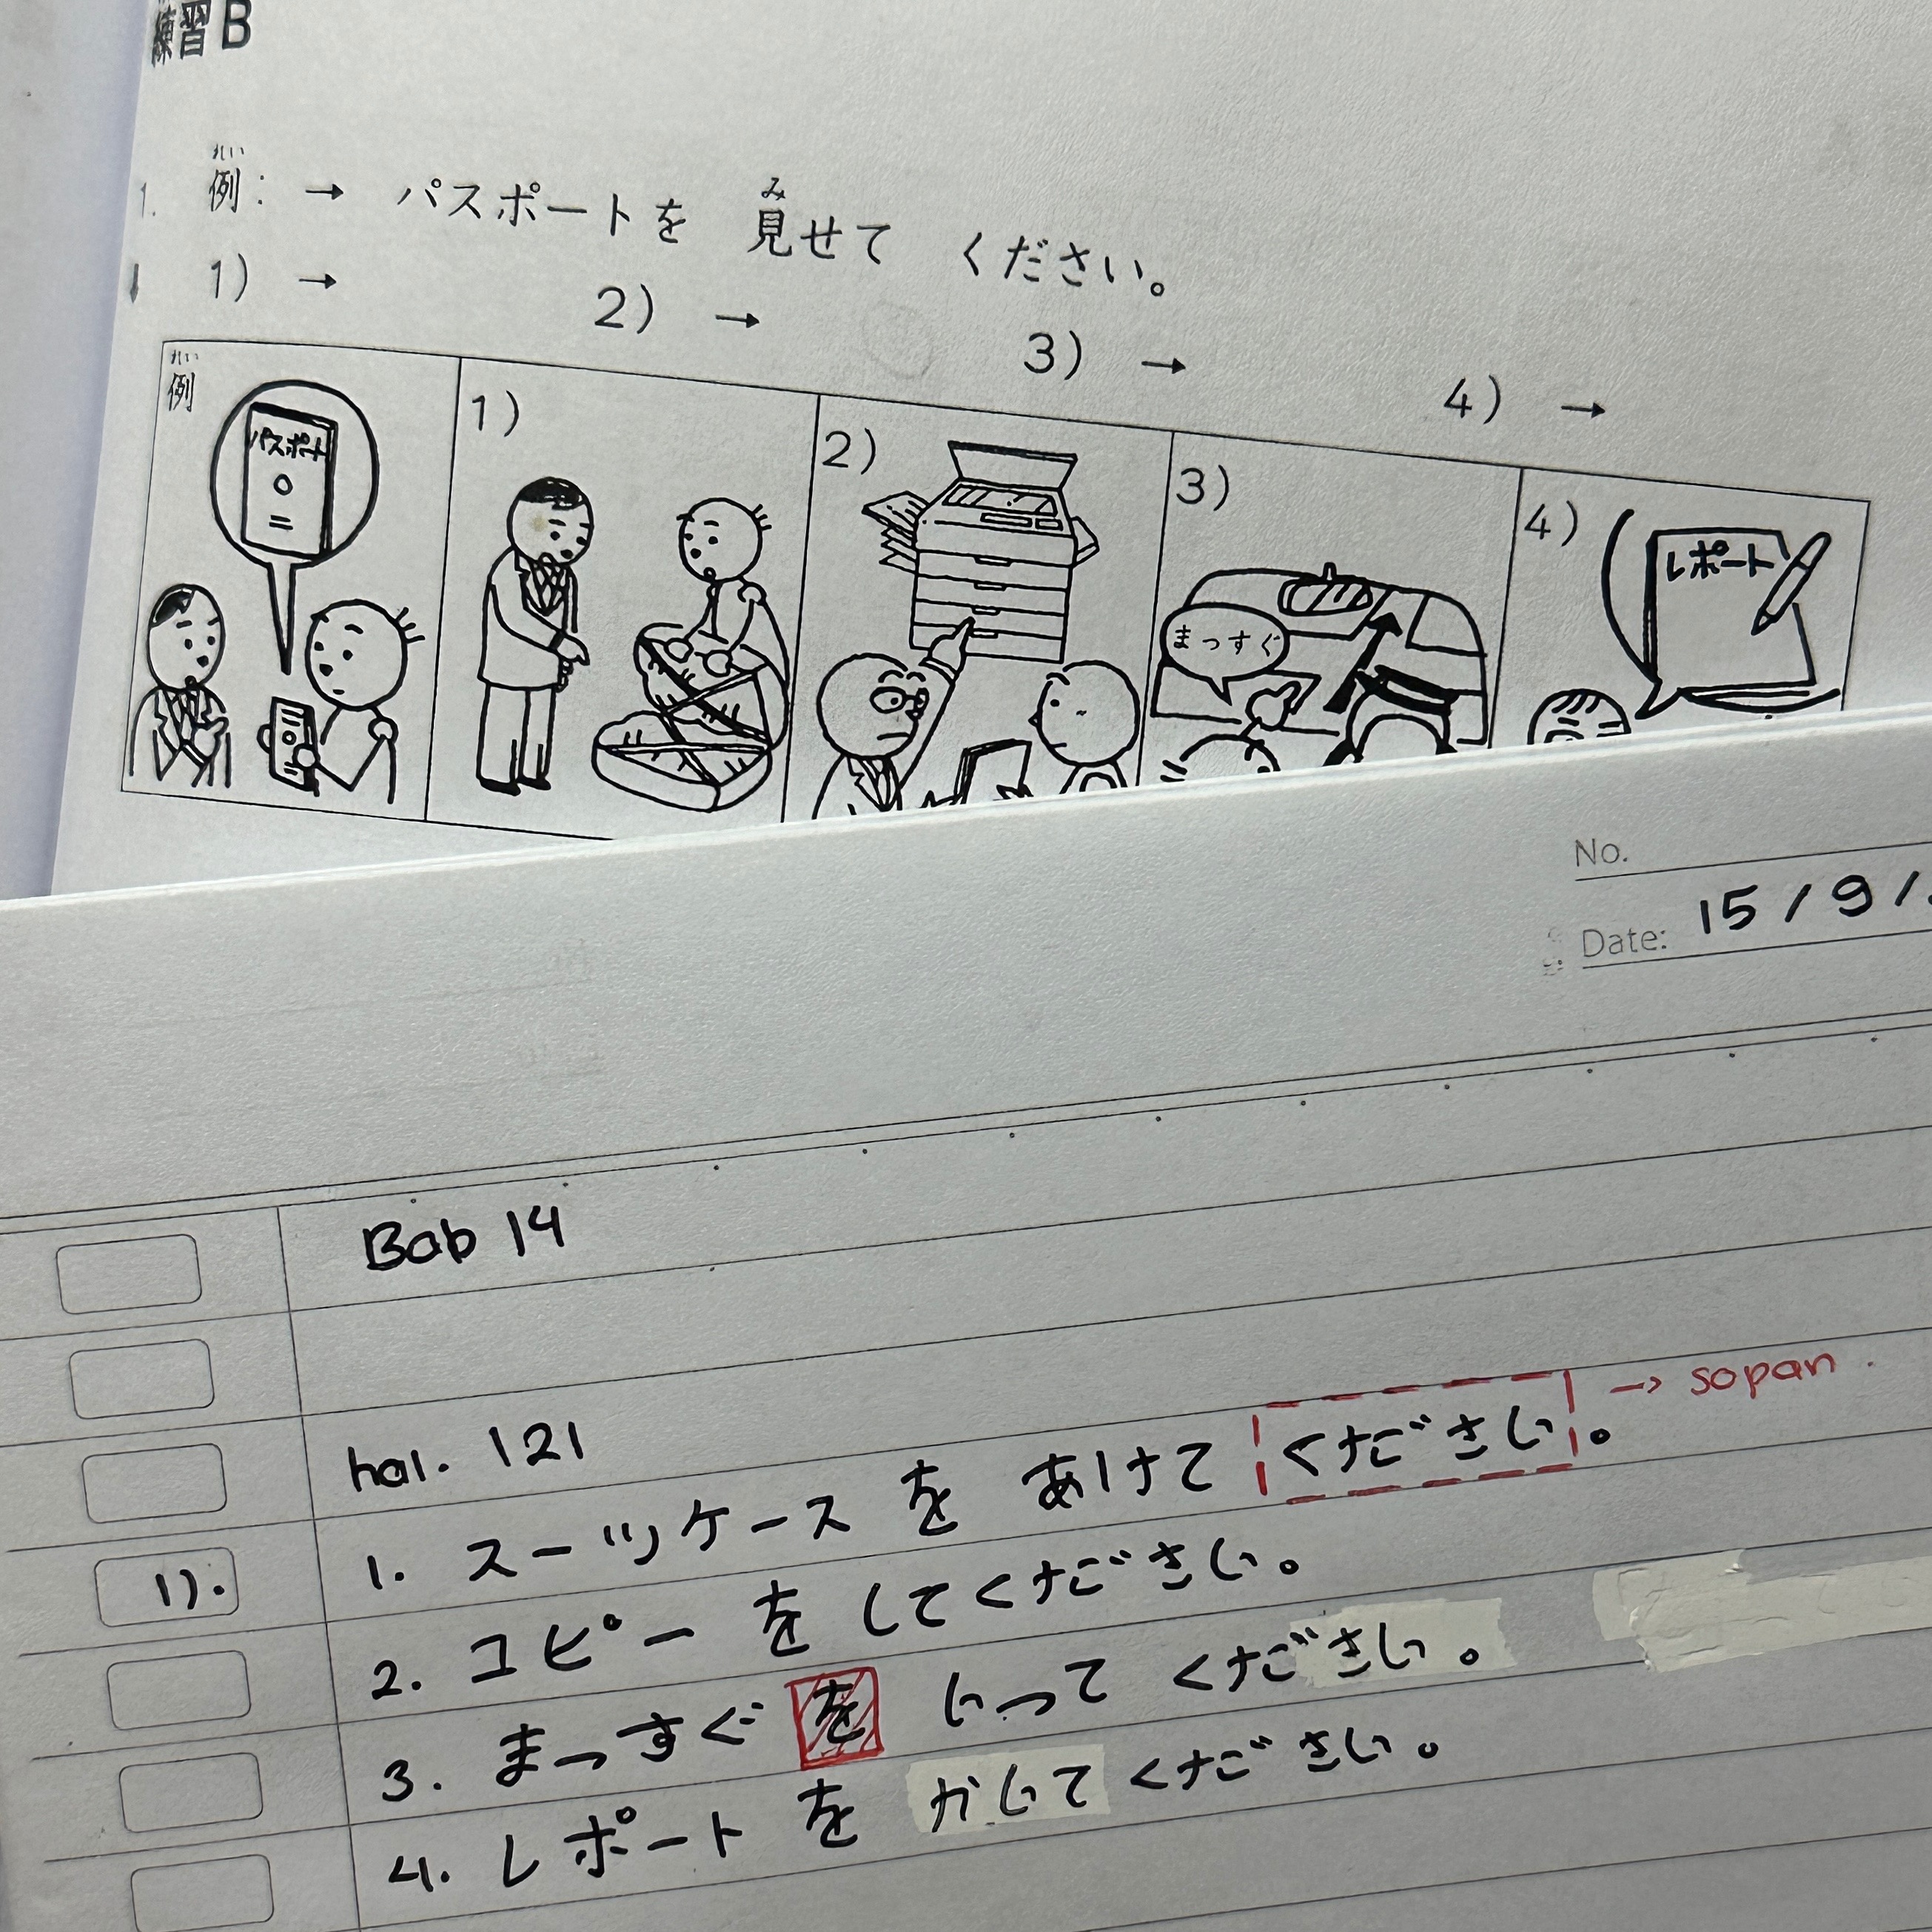 練習B
れい
み
1. 例: → パスポートを 見せて ください。
1) → 2) → 3) → 4) →
れい
例
パスポート
1)
2)
3)
まっすぐ
4)
レポート
No.
Date: 15/9/
Bab 14
hal. 121
1). 1. スーツケース を あけて ください。 → sopan.
2. コピー を してください。
3. まっすぐ を いって ください。
4. レポート を かいて ください。